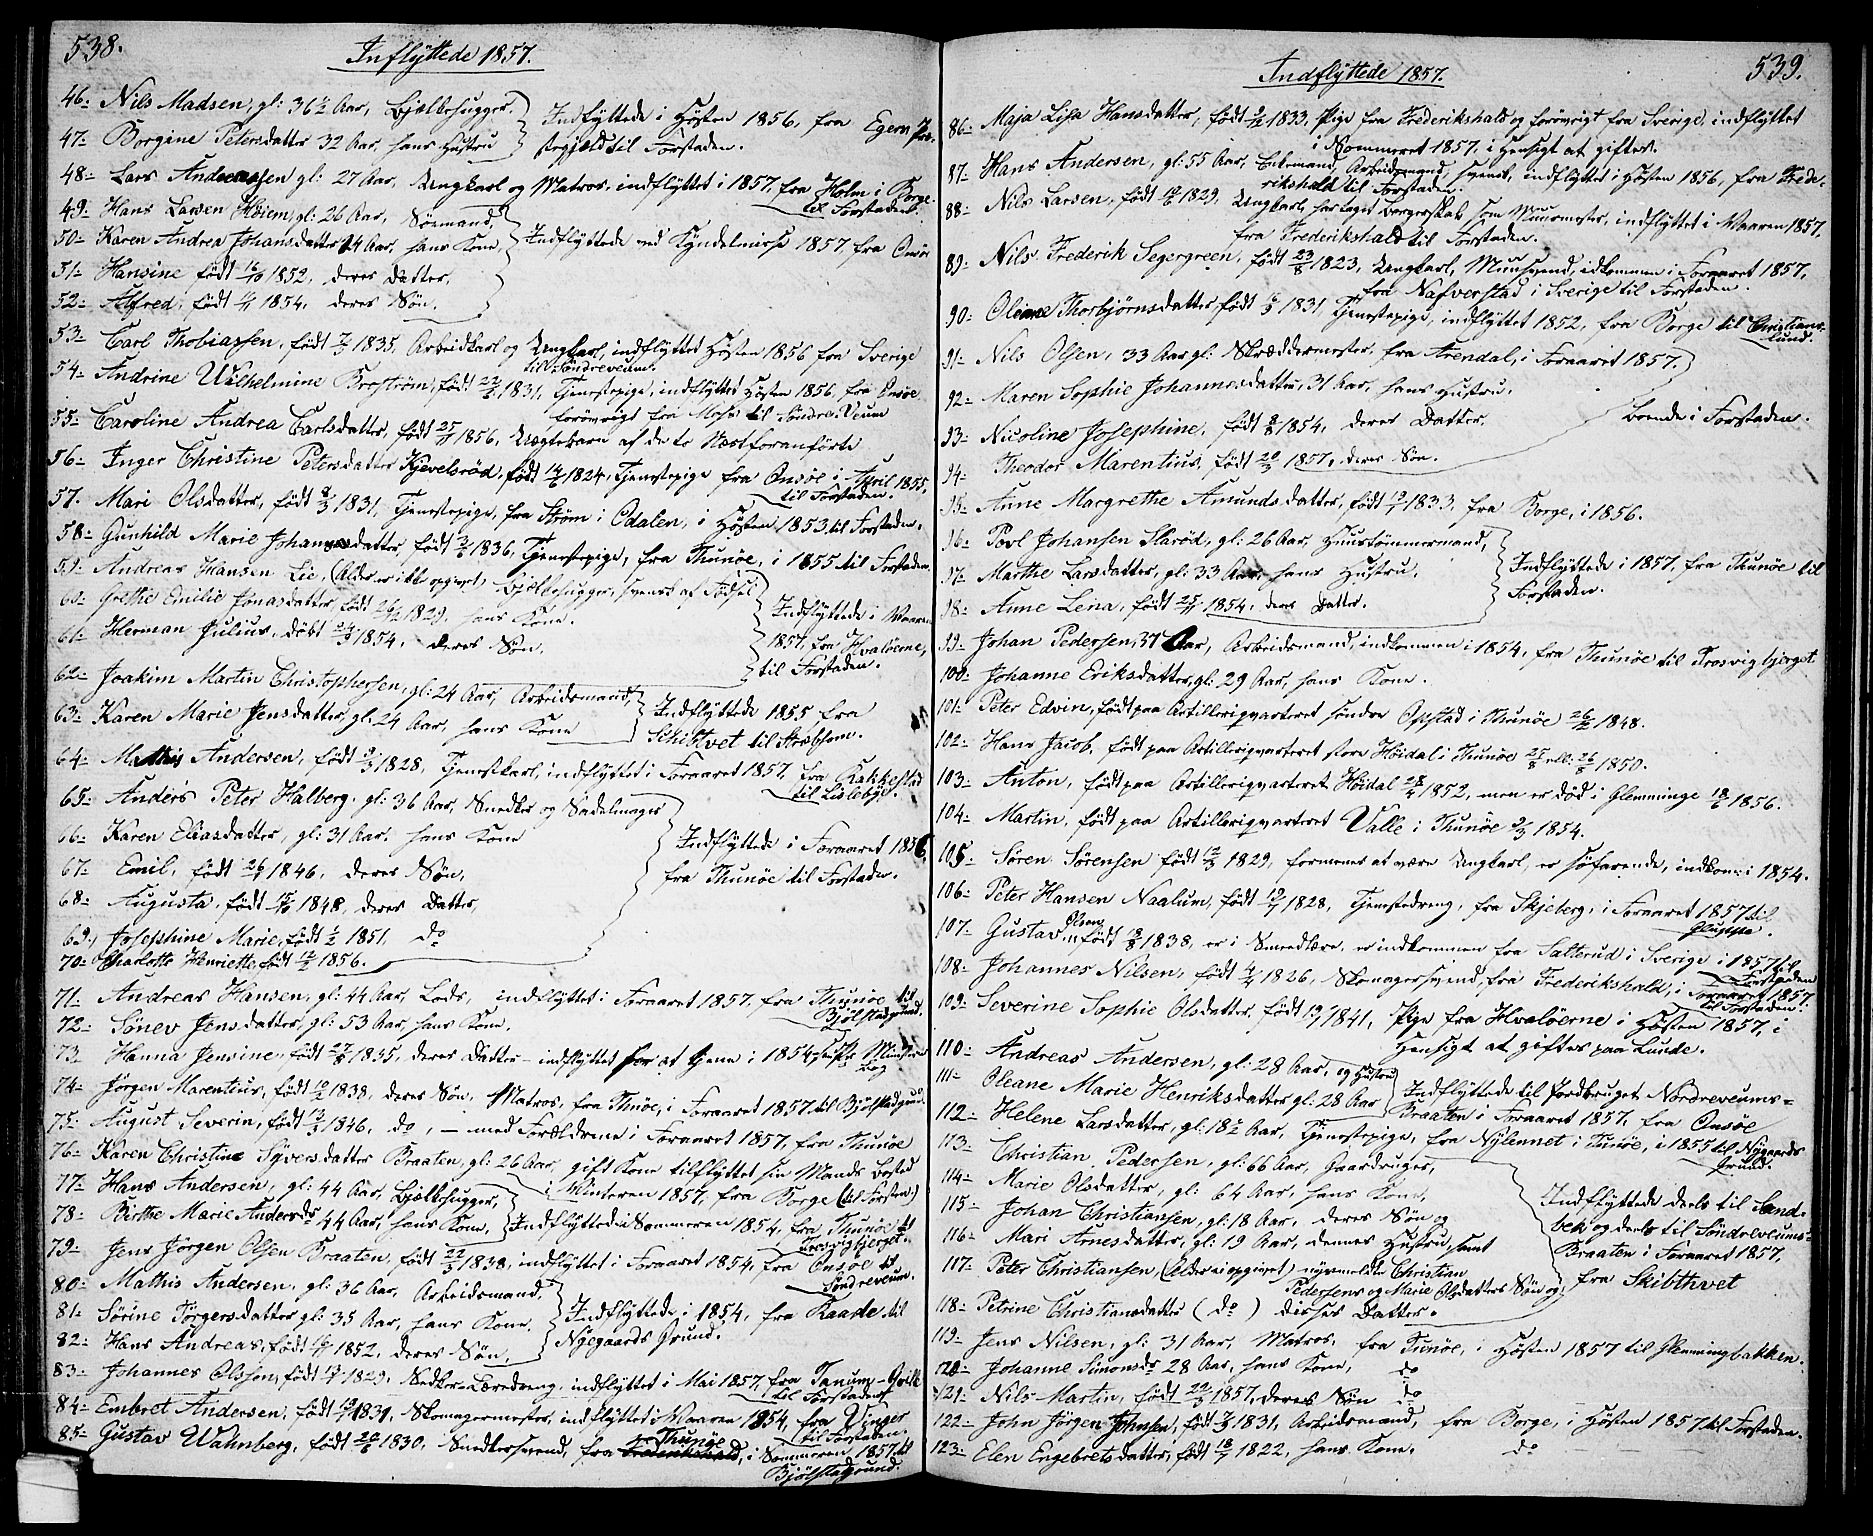 538.
Inflyttede 1857.
46. Nils Madsen, gl: 36½ Aar, Bjælkehugger.
47. Borgine Petersdatter 32 Aar, hans Hustru
Indflyttede i Høsten 1856, fra Egern Præ-
stegjeld til Forstaden.
48. Lars Andreassen gl: 27 Aar, Ungkarl og Matros, indflyttet i 1857, fra Holm i Borge
til Forstaden.
49. Hans Larsen Høiem, gl: 26 Aar, Sømand,
50. Karen Andrea Johansdatter 24 Aar, hans Kone,
Indflyttede ved Kyndelmisse 1857, fra Onsø
51. Hansine født 16/10 1852, deres Datter,
52. Alfred, født 1854, deres Søn.
53. Carl Thobiassen, født 1835, Arbeidkarl og Ungkarl, indflyttet Høsten 1856 fra Sverige
til Søndreveum.
54. Andrine Wilhelmine Brostrøm, født 22/2 1831, Tjenestepige, indflyttet Høsten 1856, fra Onsøe
forøvrigt fra Moss til Søndre-Veum
55. Caroline Andrea Carlsdatter, født 25/11 1856, Uægtebarn af de to Næstforanførte
56. Inger Christine Petersdatter Kjevelsrød, født 14/6 1824, Tjenestepige fra Onsøe i April 1855,
til Forstaden.
57. Mari Olsdatter, født 8/3 1831, Tjenestepige, fra Strøm i Odalen, i Høsten 1853 til Forstaden.
58. Gunhild Marie Johannesdatter, født 1836, Tjenestepige, fra Thunøe, i 1855 til Forstaden
59. Andreas Hansen Lie, (Alder er ikke opgivet) Bjælkehugger, svensk af Fødsel
60. Grethe Emilie Jonasdatter, født 26/12 1829, hans Kone.
61. Herman Julius, døbt 24/3 1854, deres Søn,
Indflyttede i Vaaren
1857, fra Hvaløerne,
til Forstaden.
62. Joakim Martin Christophersen, gl: 24 Aar, Arbeidsmand,
63. Karen Marie Jensdatter, gl: 24 Aar, hans Kone
Indflyttede 1855 fra
Schibtvet til
64. Mathis Andersen, født 1828, Tjenestekarl, indflyttet i Foraaret 1857, fra Rakkestad
til Lislebye.
65. Anders Peter Halberg, gl: 36 Aar, Snedker og Sadelmager
66. Karen Eliasdatter, gl: 31 Aar, hans Kone
67. Emil, født 26/9 1846, deres Søn,
68. Augusta, født 1848, deres Datter,
69. Josephine Marie, født ½ 1851, do
70. Charlotte Henriette, født 12/2 1856.
Indflyttede i Foraaret 1856,
fra Thunøe til Forstaden.
71. Andreas Hansen, gl: 44 Aar, Lods, indflyttet i Foraaret 1857, fra Thunøe til
Bjølstadgrund.
72. Sønev Jensdatter, gl: 53 Aar, hans Kone.
73. Hanna Jensine, født 27/8 1835, deres Datter – indflyttet for at tjene i 1854,
74. Jørgen Marentius, født 10/2 1838, deres Søn, Matros, fra Thunøe, i Foraaret 1857. til Bjølstadgrund.
75. August Severin, født 13/3 1846, do, – med Forældrene i Foraaret 1857, fra Thunøe
76. Karen Christine Syversdatter Braaten, gl: 26 Aar, gift Kone tilflyttet sin Mands Bosted
i Winteren 1857, fra Borge (til Forstn:)
77. Hans Andersen, gl: 44 Aar, Bjelkehugger,
78. Birthe Marie Andersdr 44 Aar, hans Kone,
Indflyttede i Sommeren 1854, fra Thunøe til
Trosvigbjerget.
79. Jens Jørgen Olsen Braaten, født 22/3 1838, indflyttet i Foraaret 1854, fra Onsøe til
Søndreveum.
80. Mathis Andersen, gl: 36 Aar, Arbeidsmand,
81. Sørine Tørgersdatter gl: 35 Aar, hans Kone,
82. Hans Andreas, født 1852, deres Søn,
Indflyttede i 1854, fra Raade til
Nygaards Grund.
83. Johannes Olssen, født 1829, Snedker-Læredreng, indflyttet i Mai 1857, fra Tanum-
til Forstaden
84. Embret Andersen, født 1831, Skomagermester, indflyttet i Vaaren 1854, fra Vinger
til Forstaden.
85. Gustav Wahnberg, født 26/6 1830, Snedkersvend, fra Thunøe, i Sommeren 1857 til
Bjølstadgrund.
539.
Indflyttede 1857.
86. Maja Lisa Hansdatter, født 1833, Pige fra Frederikshald og forøvrigt fra Sverige, indflyttet
i Sommeren 1857, i Hensigt at giftes.
87. Hans Andersen, gl: 55 Aar, Enkemand, Arbeidsmand, svensk, indflyttet i Høsten 1856, fra Frede-
rikshald til Forstaden.
88. Nils Larsen, født 1829, Ungkarl, har taget Borgerskab som Muurmester, indflyttet i Vaaren 1857,
fra Frederikshald til Forstaden.
89. Nils Frederik Segergreen, født 23/8 1823, Ungkarl, Muursvend, idkommen i Foraaret 1857,
fra Nafverstad i Sverige til Forstaden.
90. Oliane Thorbjørnsdatter født 1831, Tjenestepige, indflyttet 1852, fra Borge til Christians-
lund.
91. Nils Olsen, 33 Aar gl: Skræddermester, fra Arendal, i Foraaret 1857.
92. Maren Sophie Johannesdatter, 31 Aar, hans Hustru,
93. Nicoline Josephine, født 8/8 1854, deres Datter.
94. Theodor Marentius, født 20/3 1857, deres Søn.
Boende i Forstaden.
95. Anne Margrethe Amundsdatter, født 1833, fra Borge, i 1856.
96. Povl Johansen Slarød, gl: 26 Aar, Huustømmermand,
97. Marthe Larsdatter, gl: 33 Aar, hans Hustru,
98. Anne Lena, født 25/11 1854, deres Datter.
Indflyttede i 1857, fra Thunøe til
Forstaden.
99. Johan Pedersen, 37 Aar, Arbeidsmand, indkommen i 1854, fra Thunøe til Trosvigbjerget
100. Johanne Eriksdatter, gl: 29 Aar, hans Kone.
101. Peter Edvin, født paa Artilleriqvarteret søndre Opstad i Thunøe 26/12 1848.
102. Hans Jacob, født paa Artilleriqvarteret store Høidal i Thunøe 25/8 ell: 26/8 1850.
103. Anton, født paa Artilleriqvarteret Høidal 28/4 1852, men er død i Glemminge 18/2 1856.
104. Martin, født paa Artilleriqvarteret Valle i Thunøe 1854.
105. Søren Sørensen født 1829, formenes at være Ungkarl, er søfarende, indkom: i 1854.
106. Peter Hansen Naalum, født 19/7 1828, Tjenestedreng, fra Skjeberg, i Foraaret 1857 til
Gluppe.
107. Gustav Olsen, født 1838, er i Smedlære, er indkommen fra Salterud i Sverige i 1857 til
Forstaden
108. Johannes Nilsen, født 1826, Skomagersvend, fra Frederikshald, i Foraaret 1857
til Forstaden.
109. Severine Sophie Olsdatter, født 1841, Pige fra Hvaløerne i Høsten 1857, i
Hensigt at giftes paa Lunde.
110. Andreas Andersen, gl: 28 Aar, og Hustru
111. Oleane Marie Henriksdatter gl: 28 Aar
Indflyttede til Jordbruget Nordreveums-
Braaten i Foraaret 1857, fra Onsøe
112. Helene Larsdatter, gl: 18½ Aar, Tjenestepige, fra Nylennet i Thunøe, i 1855 til Nygaards
Grund.
113. Christian Pedersen, gl: 66 Aar, Gaardbruger,
114. Marie Olsdatter, gl: 64 Aar, hans Kone,
115. Johan Christiansen, gl: 18 Aar, deres Søn og
116. Mari Arnesdatter, gl: 19 Aar, dennes Hustru, samt
117. Peter Christiansen, (Alder ei opgivet) nysmeldte Christian
Pedersens og Marie Olsdatters Søn og
118. Petrine Christiansdatter (do) disses Datter.
Indflyttede deels til Sand-
bek og deels til Søndreveums-
Braaten i Foraaret 1857,
fra Skibthvet
119. Jens Nilsen, gl: 31 Aar, Matros, fra Tunøe, i Høsten 1857 til Glemmingbakken.
120. Johanne Simonsdr 28 Aar, hans Kone, do
121. Nils Martin, født 22/3 1857, deres Søn do
122. John Jørgen Johnsen, født 1831, Arbeidsmand, fra Borge, i Høsten 1857 til Forstaden.
123. Elen Engebretsdatter, født 18/7 1822, hans Kone. do